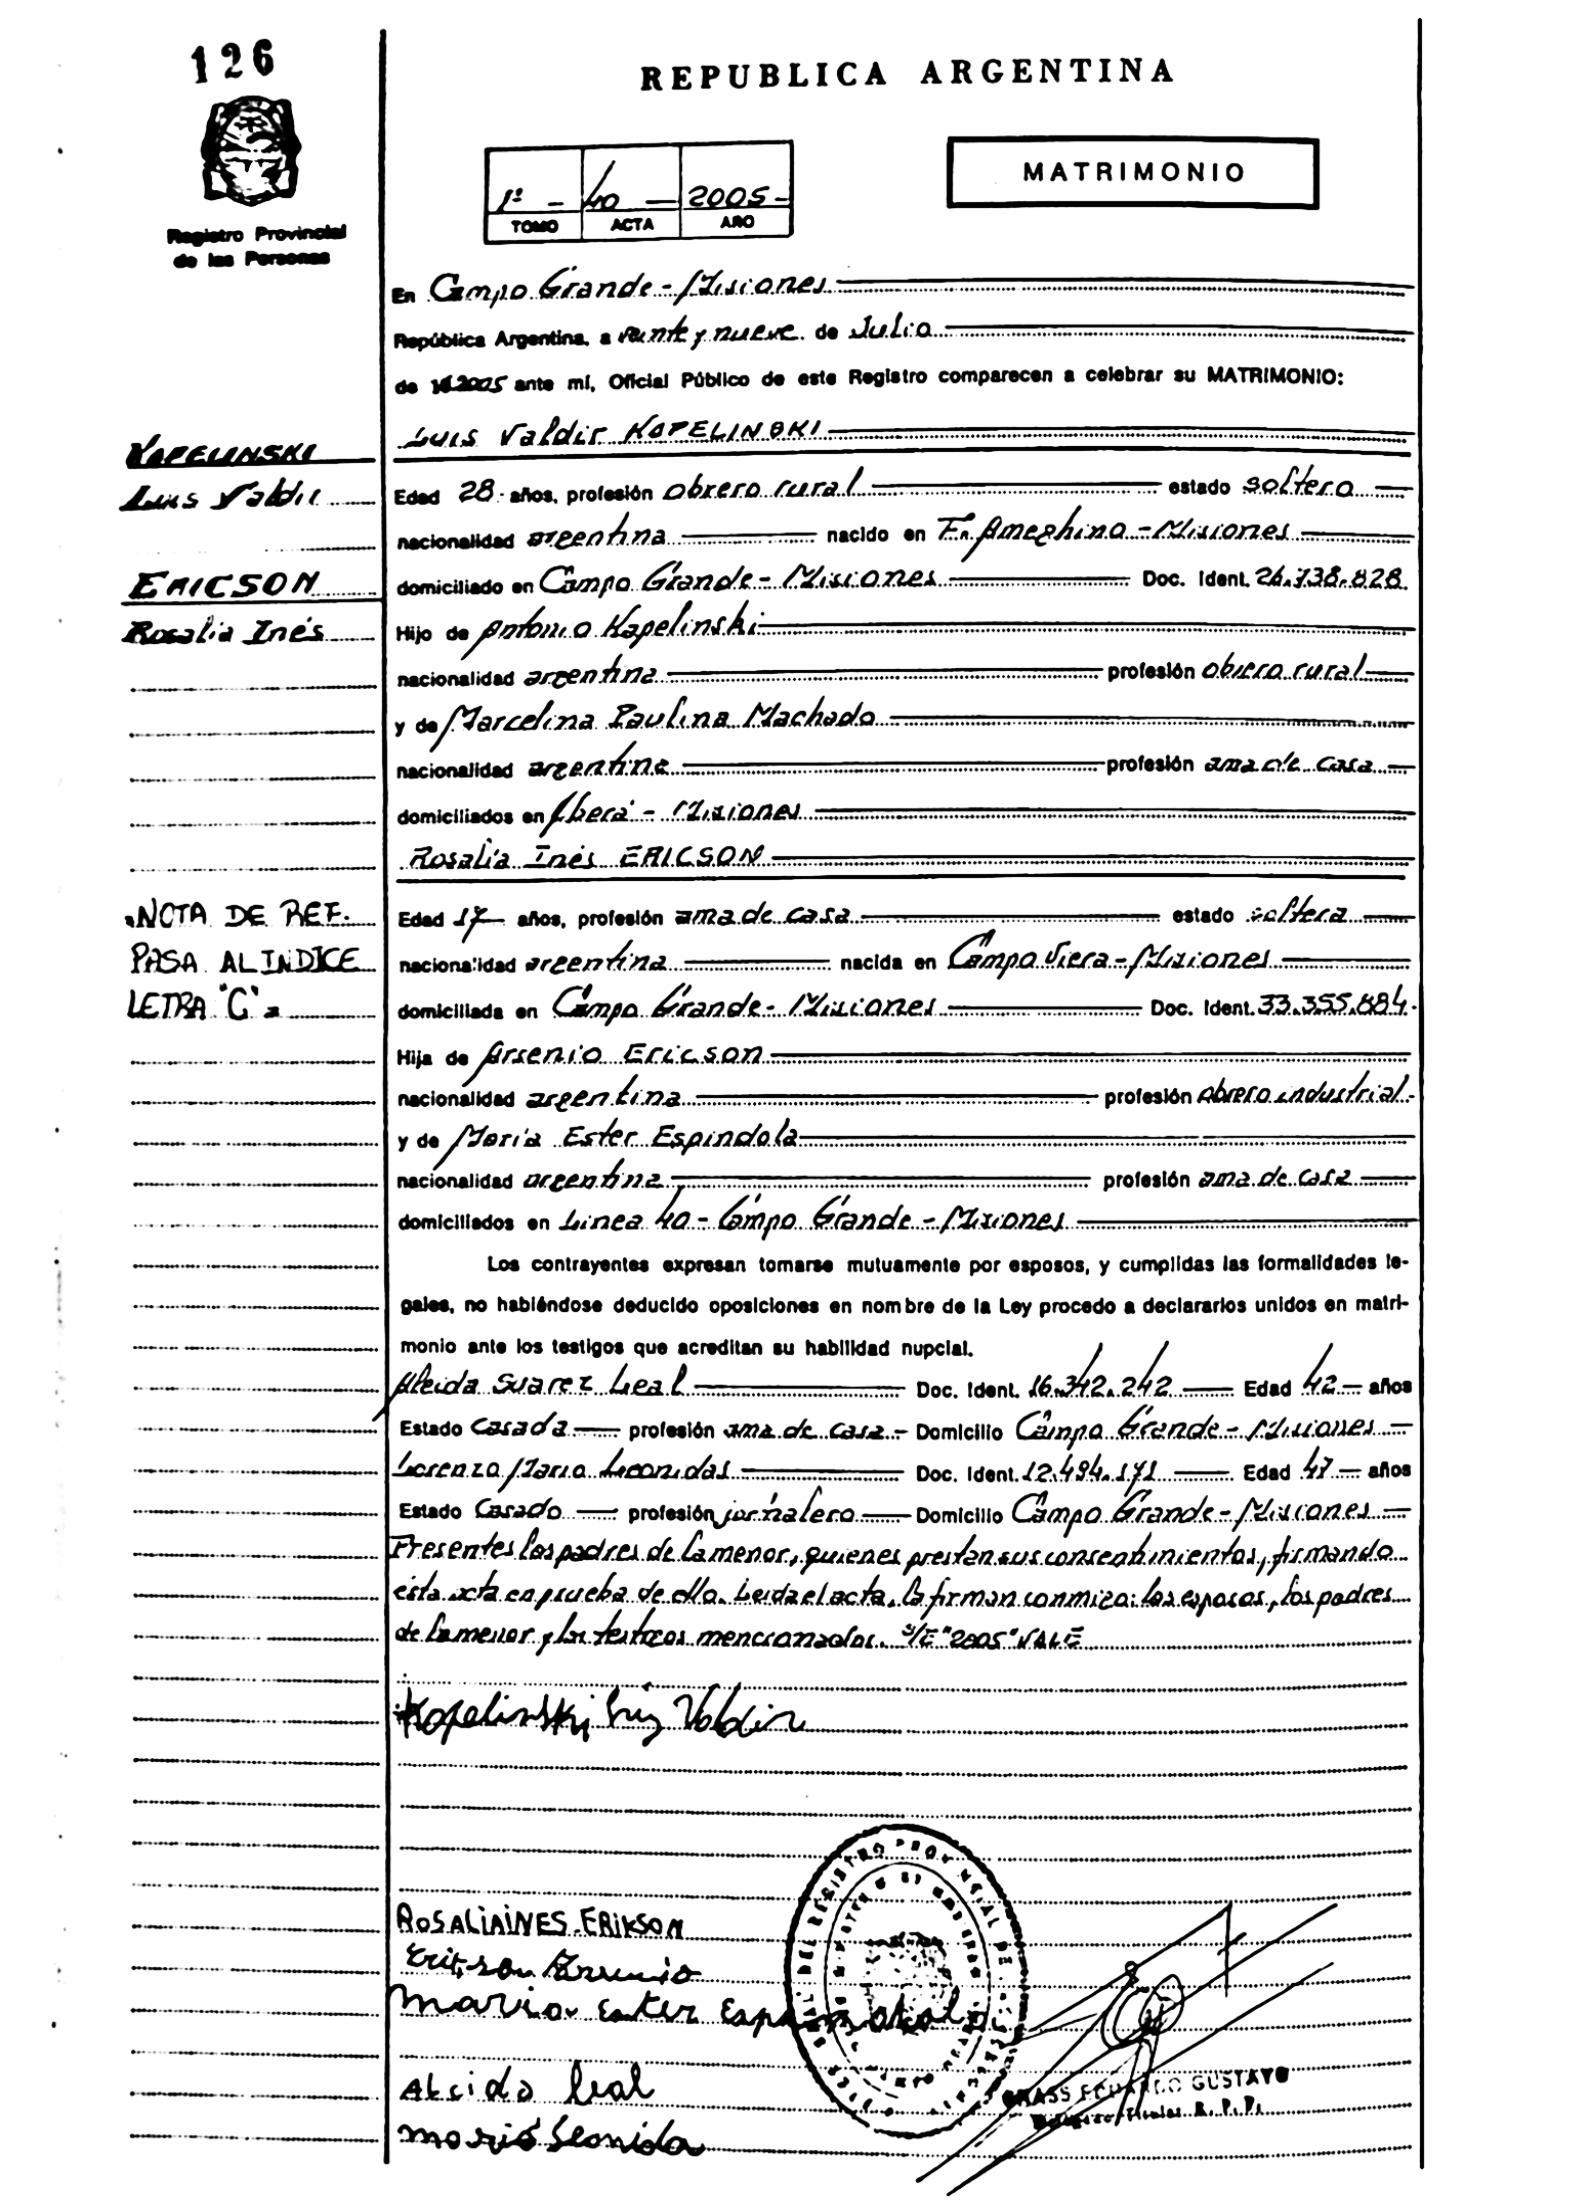 126
REPUBLICA ARGENTINA
MATRIMONIO
1º - 40 - 2005 -
TOMO ACTA AÑO
Registro Provincial
de las Personas
En Campo Grande - Misiones
República Argentina, a veinte y nueve de Julio
de 2005 ante mí, Oficial Público de este Registro comparecen a celebrar su MATRIMONIO:
Luis Valdir KOPELINSKI
KOPELINSKI
Luis Valdir
Edad 28 años, profesión obrero rural estado soltero
nacionalidad argentina nacido en Fn Ameghino - Misiones
ERICSON
domiciliado en Campo Grande - Misiones Doc. Ident. 26.738.828
Rosalia Inés
Hijo de Antonio Kapelinski
nacionalidad argentina profesión obrero rural
y de Marcelina Paulina Machado
nacionalidad argentina profesión ama de casa
domiciliados en Iberá - Misiones
Rosalia Inés ERICSON
NOTA DE REF.
Edad 17 años, profesión ama de casa estado soltera
PASA AL INDICE
nacionalidad argentina nacida en Campo Viera - Misiones
LETRA "C" =
domiciliada en Campo Grande - Misiones Doc. Ident. 33.355.884.
Hija de Arsenio Ericson
nacionalidad argentina profesión obrero industrial.
y de María Ester Espindola
nacionalidad argentina profesión ama de casa
domiciliados en Linea 40 - Campo Grande - Misiones
Los contrayentes expresan tomarse mutuamente por esposos, y cumplidas las formalidades le-
gales, no habiéndose deducido oposiciones en nombre de la Ley procedo a declararlos unidos en matri-
monio ante los testigos que acreditan su habilidad nupcial.
Suarez Leal Doc. Ident. 16.342.242 Edad 42 años
Estado Casada profesión ama de casa Domicilio Campo Grande - Misiones
Lorenzo Mario Leonidas Doc. Ident. 12.494.171 Edad 47 años
Estado Casado profesión jornalero Domicilio Campo Grande - Misiones
Presentes los padres de la menor, quienes prestan sus consentimientos, firmando
ésta acta en prueba de ello. Leida el acta, la firman conmigo: los esposos, los padres
de la menor y los testigos mencionados. S/E "2005" VALE
Kopelinski Luis Valdir
ROSALIAINES ERIKSON
María Ester Espindola
Alcida Leal
Mario Leonida
GUSTAVO
R. P. P.